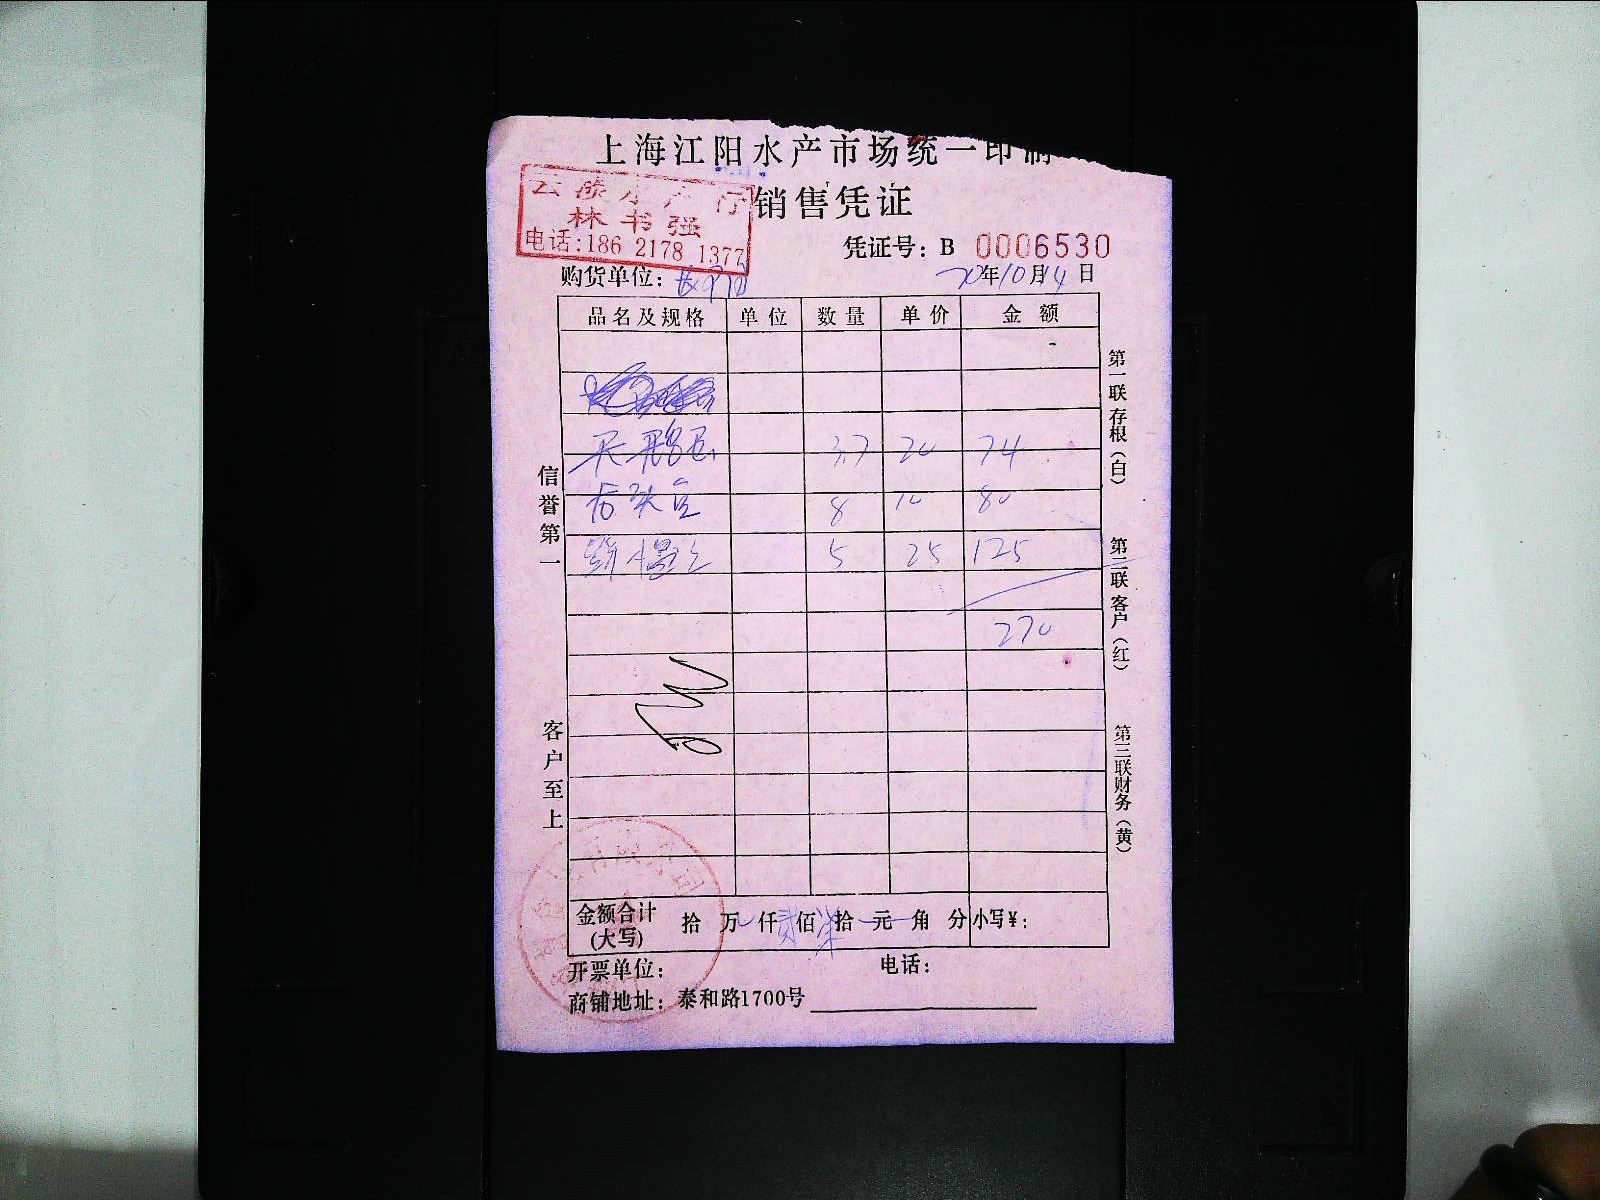 上海江阳水产市场统一印制
销售凭证
林书强
电话:186 2178 1377
凭证号: B 0006530
购货单位:
20年10月14日
品名及规格 单位 数量 单价 金额
3.7 20 74
8 10 80
5 25 125
270
信誉第一
客户至上
第一联存根(白)
第二联客户(红)
第三联财务(黄)
金额合计(大写) 拾 万 仟 贰 佰 柒 拾 元 角 分 小写¥:
开票单位: 电话:
商铺地址: 泰和路1700号